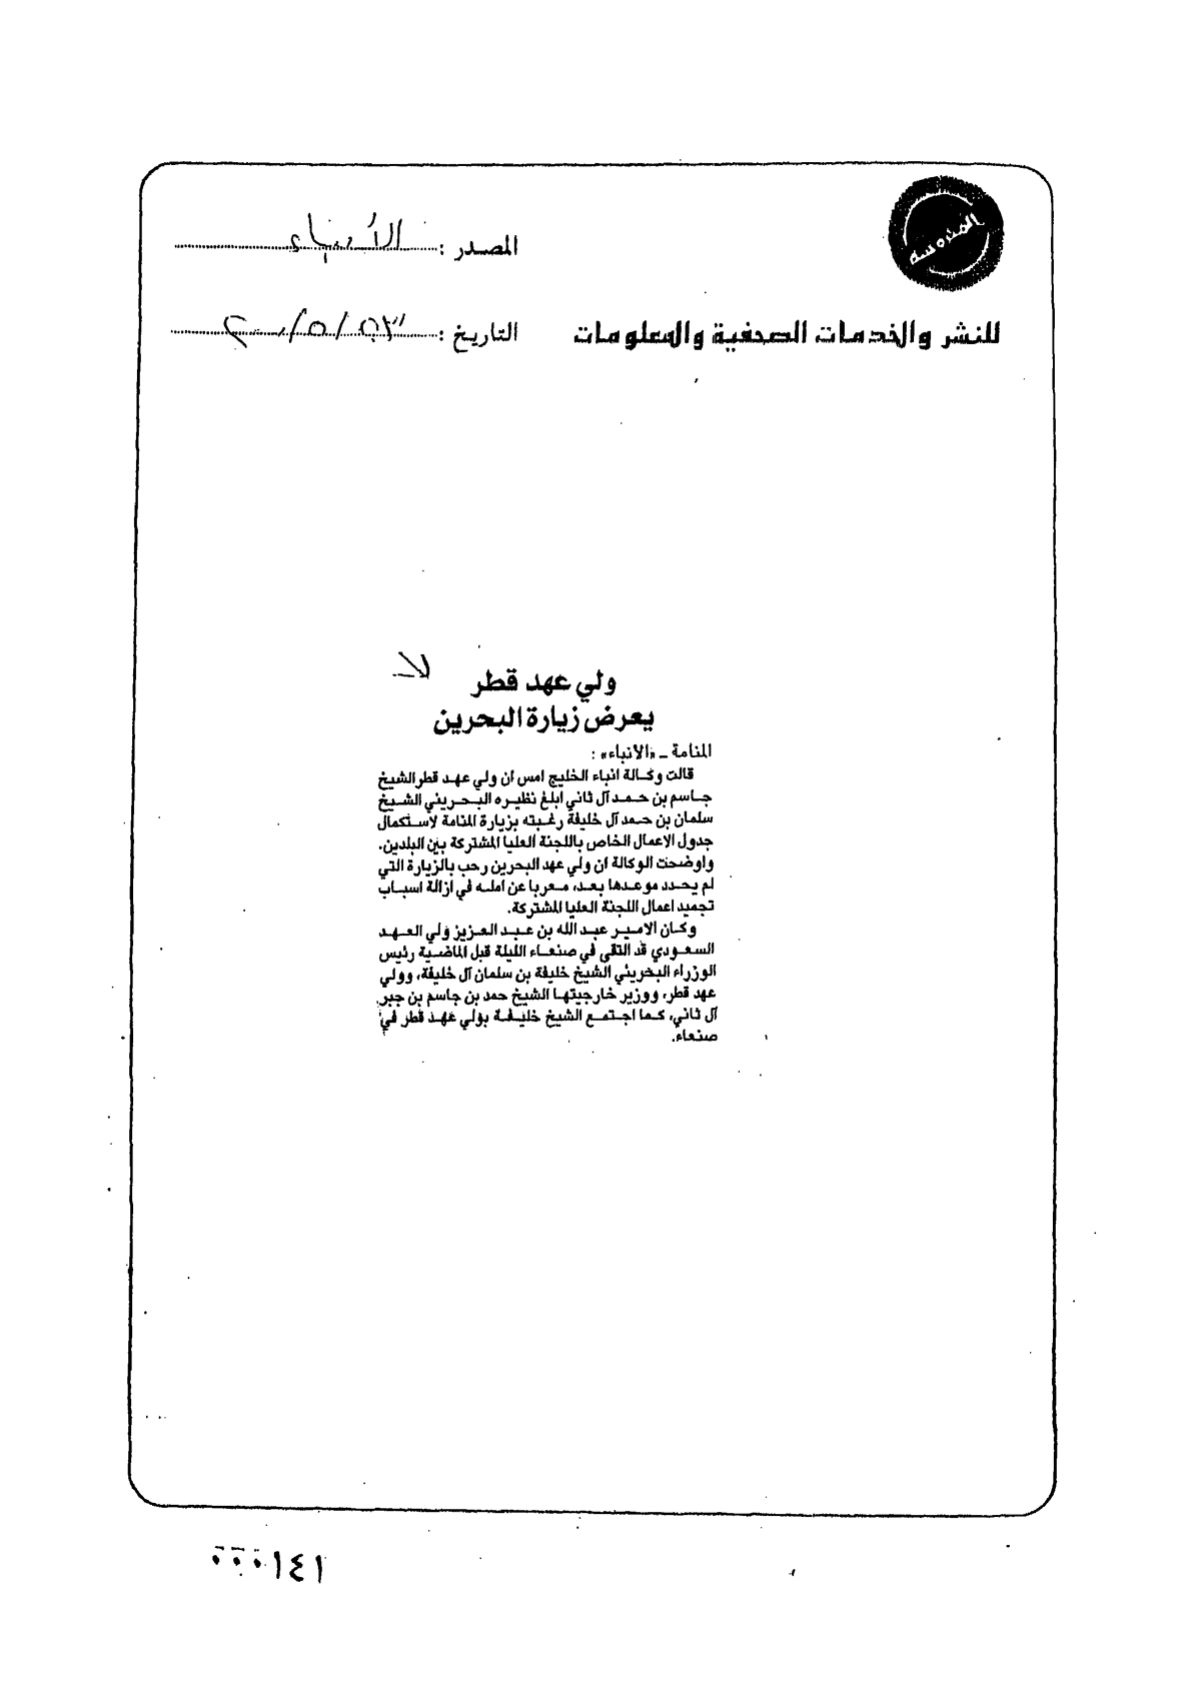 المحروسة
للنشر والخدمات الصحفية والمعلومات
المصدر : الأنباء
التاريخ :
ولي عهد قطر
يعرض زيارة البحرين
المنامة ـ «الانباء» :
قالت وكالة انباء الخليج امس ان ولي عهد قطر الشيخ
جاسم بن حمد آل ثاني ابلغ نظيره البحريني الشيخ
سلمان بن حمد آل خليفة رغبته بزيارة المنامة لاستكمال
جدول الاعمال الخاص باللجنة العليا المشتركة بين البلدين.
واوضحت الوكالة ان ولي عهد البحرين رحب بالزيارة التي
لم يحدد موعدها بعد، معربا عن امله في ازالة اسباب
تجميد اعمال اللجنة العليا المشتركة.
وكان الامير عبد الله بن عبد العزيز ولي العهد
السعودي قد التقى في صنعاء الليلة قبل الماضية رئيس
الوزراء البحريني الشيخ خليفة بن سلمان آل خليفة، وولي
عهد قطر، ووزير خارجيتها الشيخ حمد بن جاسم بن جبر
آل ثاني، كما اجتمع الشيخ خليفة بولي عهد قطر في
صنعاء.
٠٠٠١٤١